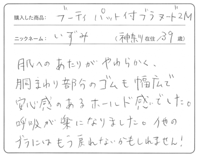 購入した商品: ブーティ パット付ブラ ヌード2M
ニックネーム: いずみ (神奈川 在住 / 39 歳)
肌へのあたりがやわらかく、
胴まわり部分のゴムも幅広で
安心感のあるホールド感でした。
呼吸が楽になりました。他の
ブラにはもう戻れないかもしれません!